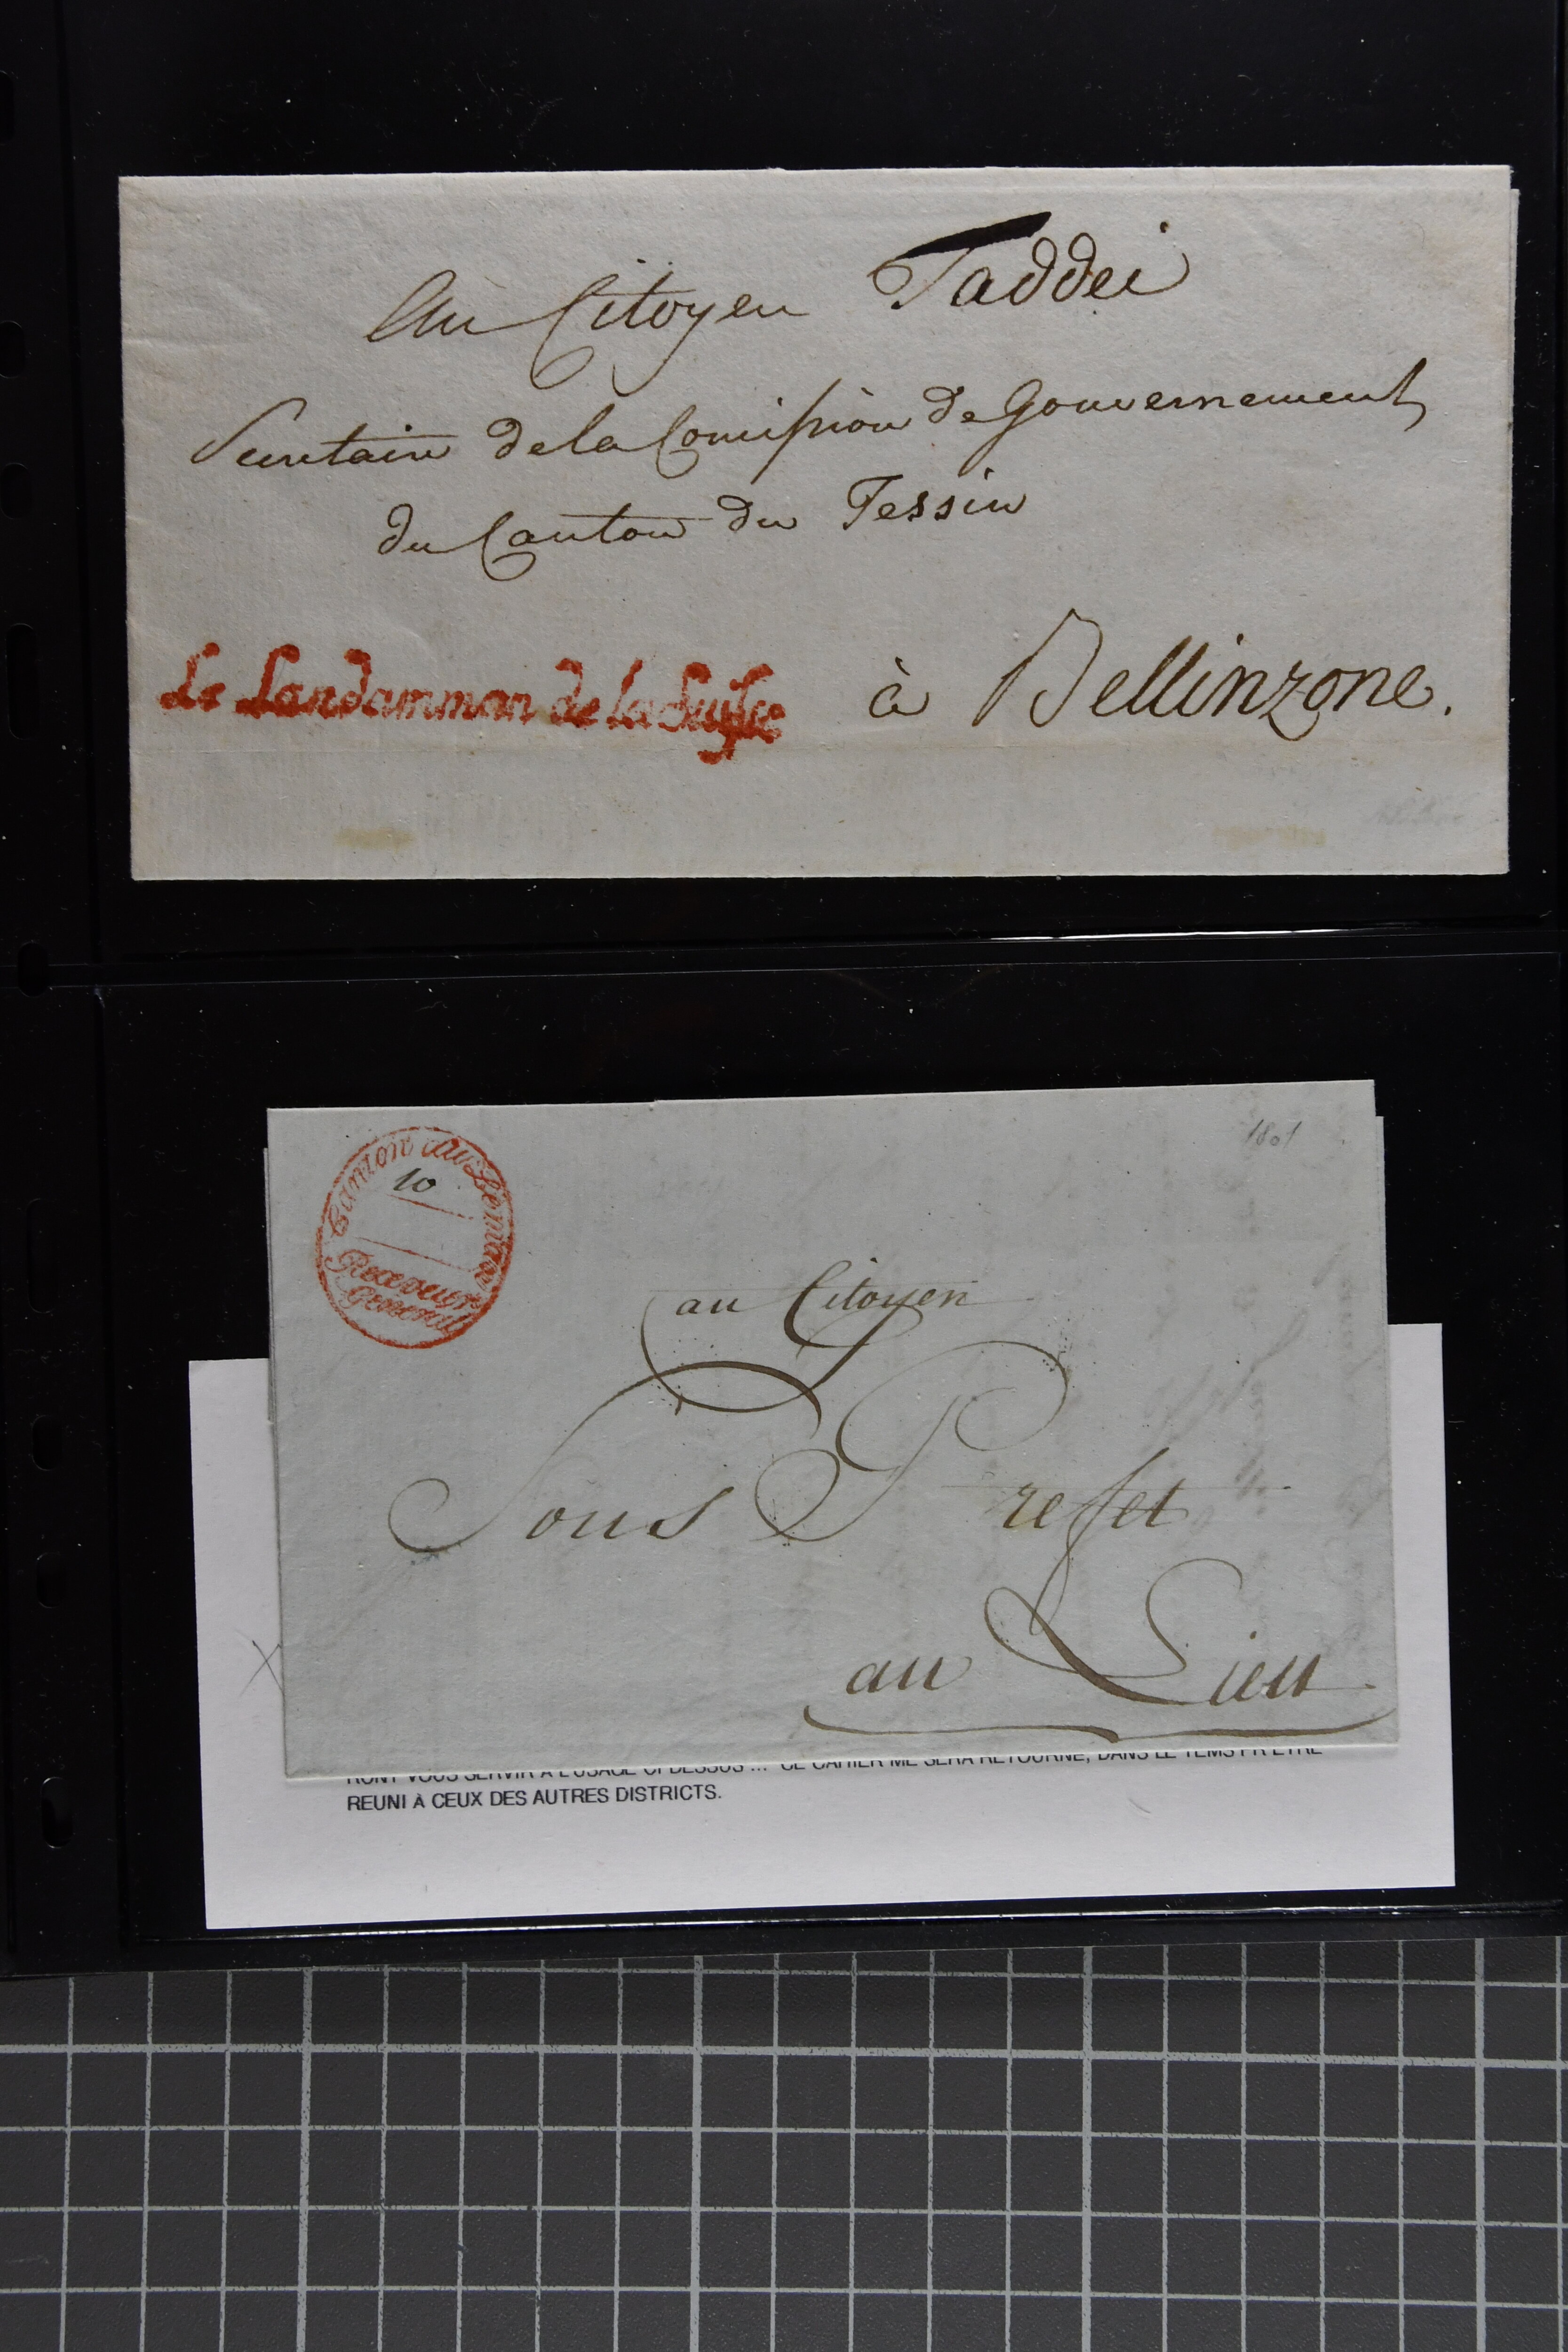 Au Citoyen Taddei
Secretaire de la Comission de Gouvernement
du Canton du Tessin
Le Landamman de la Suisse
à Bellinzone.
1801
Canton du Léman
10
Receveur
General
au Citoyen
Sous Prefet
au Lieu
RONT VOUS SERVIR A L'USAGE CI DESSUS ... CE CAHIER ME SERA RETOURNÉ, DANS LE TEMS PR ETRE
REUNI À CEUX DES AUTRES DISTRICTS.